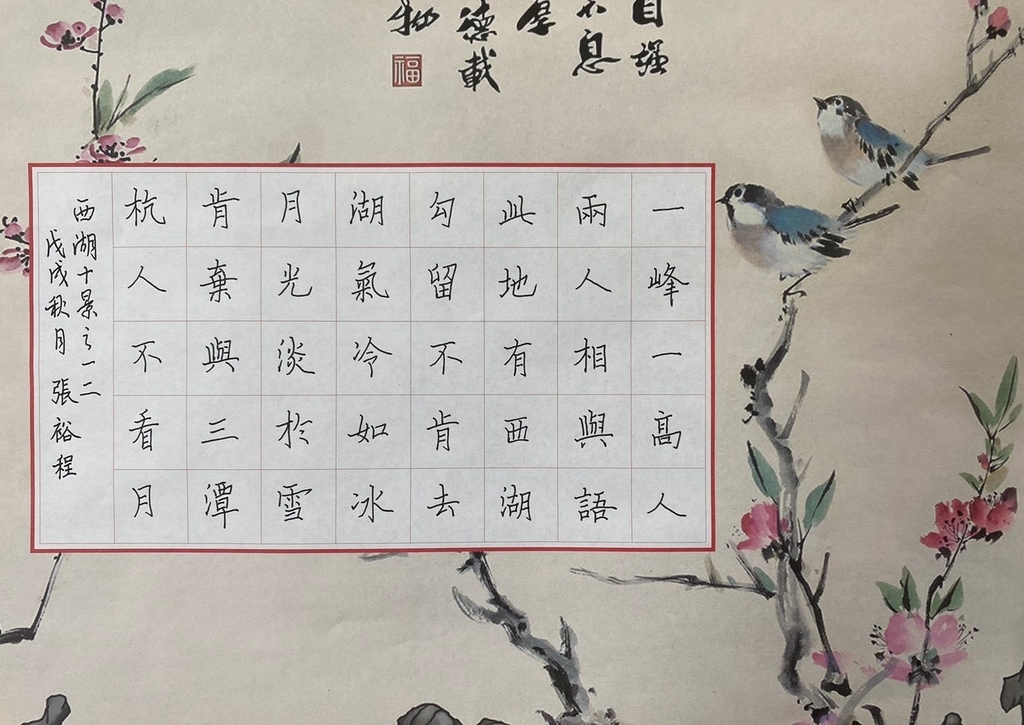 自强
不息
厚
德載
物
福
一峰一高人
兩人相與語
此地有西湖
勾留不肯去
湖氣冷如冰
月光淡於雪
肯棄與三潭
杭人不看月
西湖十景之一二
戊戌秋月 張裕程